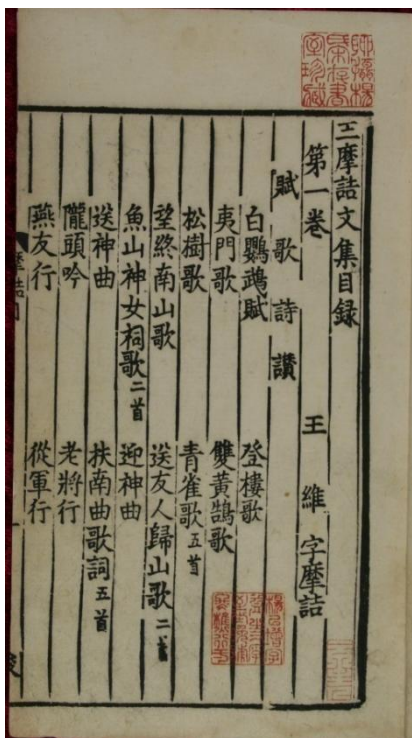 王摩詰文集目録
第一卷 王維字摩詰
賦歌詩讃
白鸚鵡賦 登樓歌
夷門歌 雙黃鵠歌
松樹歌 青雀歌五首
望終南山歌 送友人歸山歌二首
魚山神女祠歌二首 迎神曲
送神曲 扶南曲歌詞五首
隴頭吟 老將行
燕友行 從軍行
摩詰